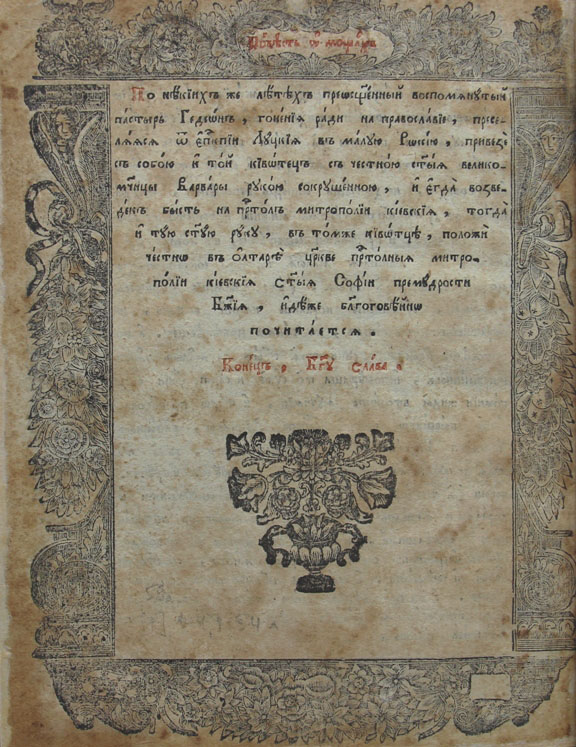 Повѣсть ѡ мощахъ
По нѣкіихъ же лѣтѣхъ преѡсщ҃енный воспомянутый
пастырь Гедеѡнъ, гоненія ради на православіе, пресе-
ляяся ѿ єп҃копіи Луцкія въ малую Рѡссію, привезе
съ собою и той ківѡтецъ съ честною ст҃ыя велико-
мч҃ницы Варвары рукою сокрушенною, и єгда возве-
денъ бысть на прⷭ҇толъ митрополіи кіевскія, тогда
и тую ст҃ую руку, въ томже ківѡтцѣ, положи
честнѡ въ ѻлтарѣ цр҃кве прⷭ҇толныя митро-
поліи кіевскія ст҃ыя Софіи премудрости
Бж҃ія, идѣже бл҃гоговѣйнѡ
почитается.
Конецъ, Бг҃у слава.